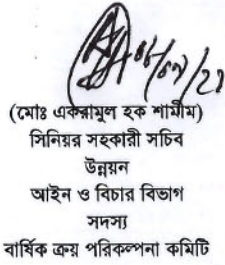 (মোঃ একরামুল হক শামীম)
সিনিয়র সহকারী সচিব
উন্নয়ন
আইন ও বিচার বিভাগ
সদস্য
বার্ষিক ক্রয় পরিকল্পনা কমিটি